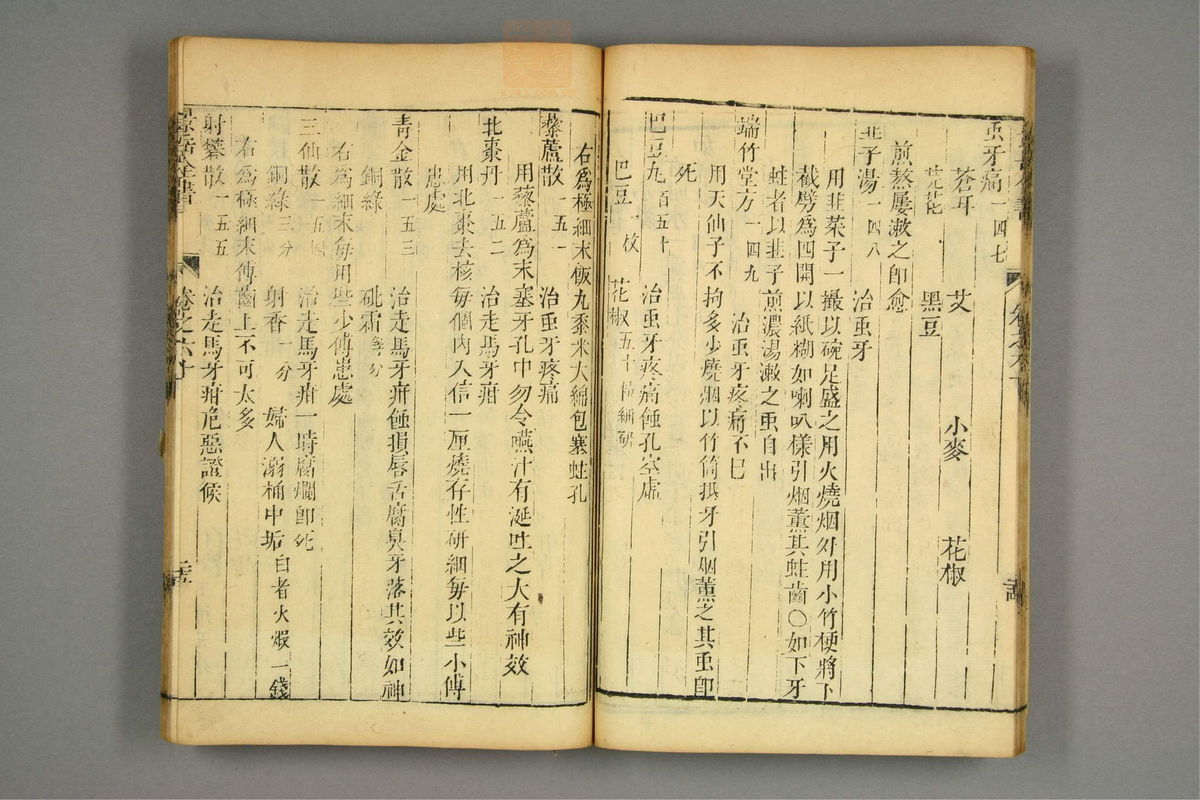 虫牙痛一四七
蒼耳 艾 小麥 花椒
芫花 黑豆
煎熬屢漱之卽愈
韭子湯一四八 治虫牙
用韭菜子一撮以碗足盛之用火燒烟外用小竹梗將下
截劈爲四開以紙糊如喇叭樣引烟薰其蛀齒○如下牙
蛀者以韭子煎濃湯漱之虫自出
端竹堂方一四九 治虫牙疼痛不巳
用天仙子不拘多少燒烟以竹筒 牙引烟薰之其虫卽
死
巴豆丸百五十 治虫牙疼痛蝕孔空虛
巴豆一枚 花椒五十粒細研
右爲極細末飯丸黍米大綿包塞蛀孔
藜蘆散一五一 治虫牙疼痛
用藜蘆爲末塞牙孔中勿令嚥汁有涎吐之大有神效
北棗丹一五二 治走馬牙疳
用北棗去核每個內入信一厘燒存性研細每以些小傅
患處
青金散一五三 治走馬牙疳蝕損唇舌腐臭牙落其效如神
銅綠 砒霜等分
右爲細末每用些少傅患處
三仙散一五四 治走馬牙疳一時腐爛卽死
銅綠三分 射香一分 婦人溺桶中垢白者火煆一錢
右爲極細末傅齒上不可太多
射礬散一五五 治走馬牙疳危惡證候
景岳全書 卷之六十 二十五